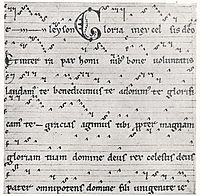 e — — leyson Gloria in excelsis deo
Et in terra pax hominibus bone voluntatis
laudam te benedicimus te adoram te glorifi
cam te gracias agimus tibi propter magnam
gloriam tuam domine deus rex celestis deus
pater omnipotens domine fili unigenite ie